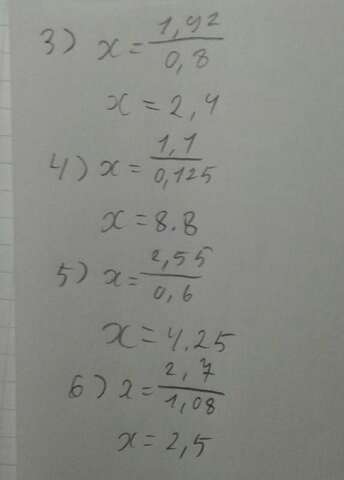 3) x = 1,92 / 0,8
x = 2,4
4) x = 1,1 / 0,125
x = 8.8
5) x = 2,55 / 0,6
x = 4.25
6) x = 2,7 / 1,08
x = 2,5